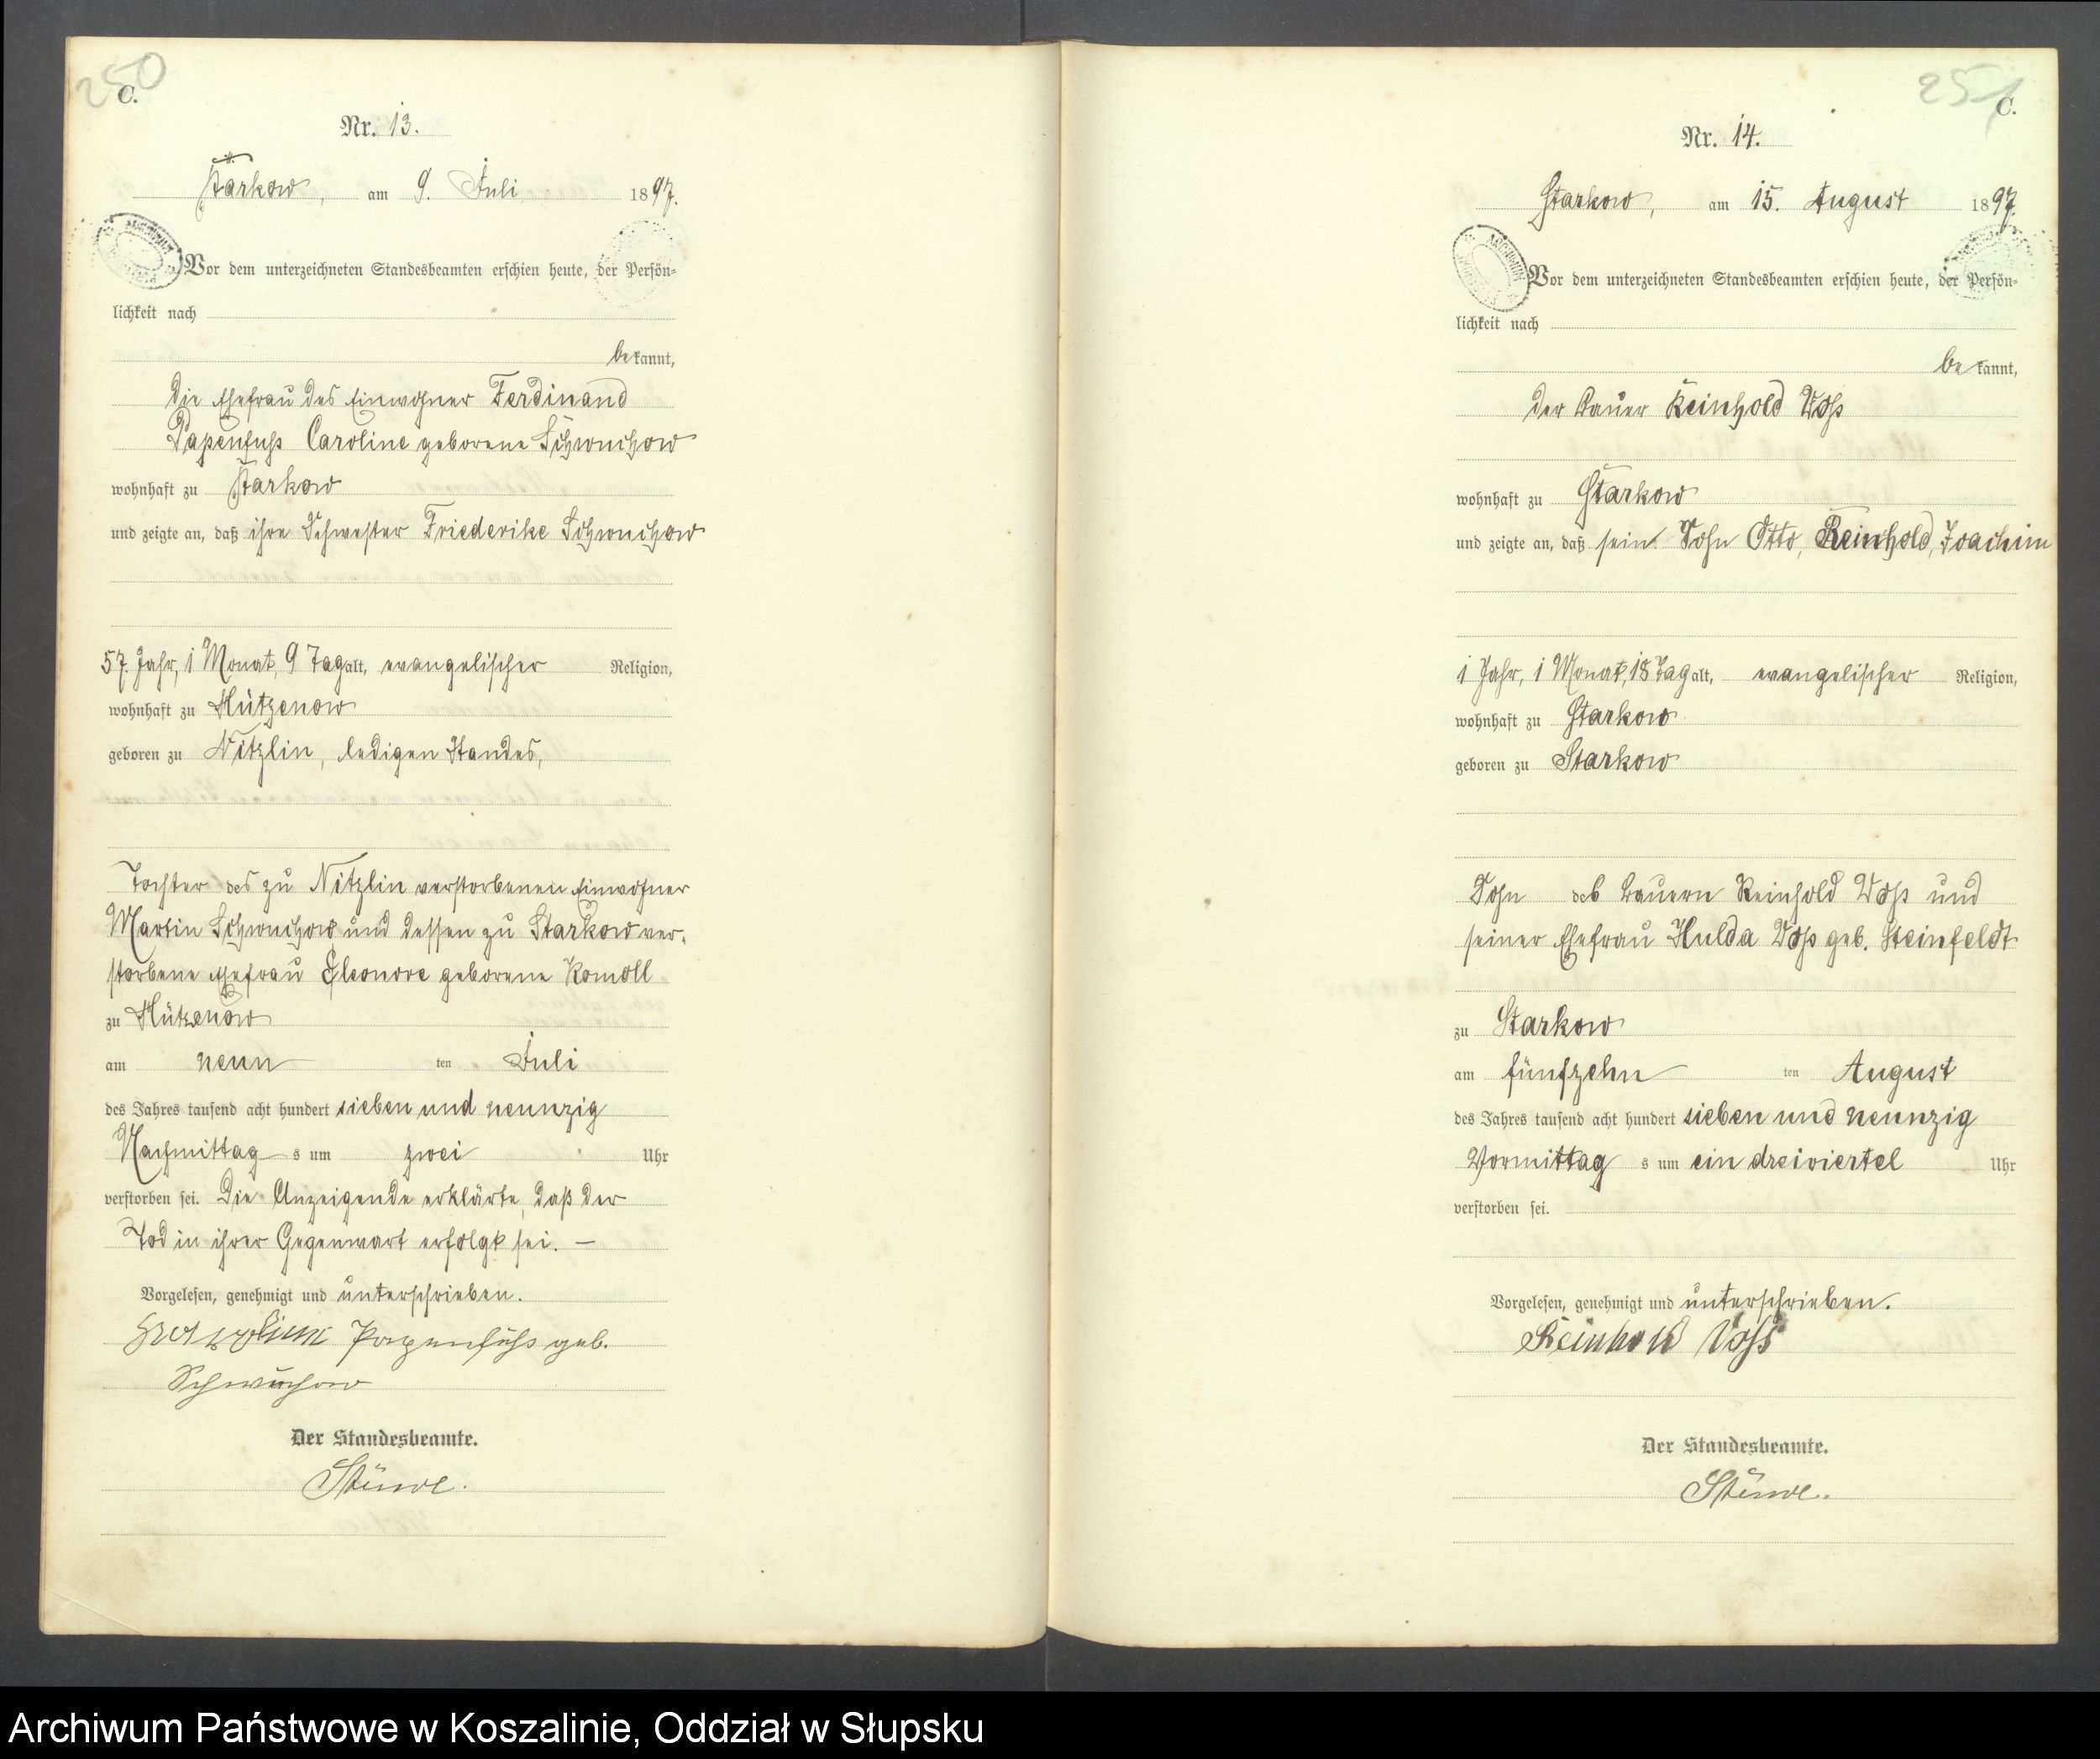 250
C.
Nr. 13.
Starkow, am 9. Juli 1897.
Vor dem unterzeichneten Standesbeamten erschien heute, der Persön-
lichkeit nach
bekannt,
die Ehefrau des Einwohner Ferdinand
Papenfuß Caroline geborene Schwuchow
wohnhaft zu Starkow
und zeigte an, daß ihre Schwester Friederike Schwuchow
57. Jahr, 1 Monat, 9 Tag alt, evangelischer Religion,
wohnhaft zu Mützenow
geboren zu Nitzlin, ledigen Standes,
Tochter des zu Nitzlin verstorbenen Einwohner
Martin Schwuchow und dessen zu Starkow ver-
storbene Ehefrau Eleonore geborene Komoll
zu Mützenow
am neun ten Juli
des Jahres tausend acht hundert sieben und neunzig
Nachmittag s um zwei Uhr
verstorben sei. Die Anzeigende erklärte, daß der
Tod in ihrer Gegenwart erfolgt sei. —
Vorgelesen, genehmigt und unterschrieben.
Papenfuß geb.
Schwuchow
Der Standesbeamte.
Stüwe.
251
C.
Nr. 14.
Starkow, am 15. August 1897.
Vor dem unterzeichneten Standesbeamten erschien heute, der Persön-
lichkeit nach
bekannt,
der Bauer Reinhold Voß
wohnhaft zu Starkow
und zeigte an, daß sein Sohn Otto, Reinhold, Joachim
1 Jahr, 1 Monat, 18 Tag alt, evangelischer Religion,
wohnhaft zu Starkow
geboren zu Starkow
Sohn des Bauern Reinhold Voß und
seiner Ehefrau Hulda Voß geb. Steinfeldt
zu Starkow
am fünfzehn ten August
des Jahres tausend acht hundert sieben und neunzig
Vormittag s um ein dreiviertel Uhr
verstorben sei.
Vorgelesen, genehmigt und unterschrieben.
Reinhold Voß
Der Standesbeamte.
Stüwe.
Archiwum Państwowe w Koszalinie, Oddział w Słupsku